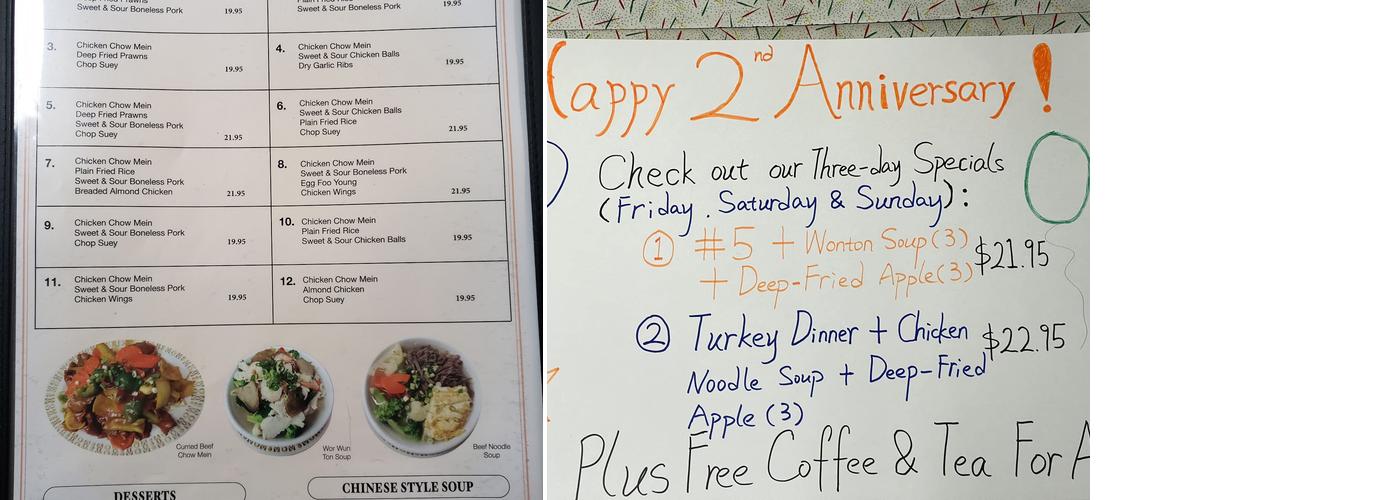 Sweet & Sour Boneless Pork 19.95
Sweet & Sour Boneless Pork 19.95
3. Chicken Chow Mein
Deep Fried Prawns
Chop Suey 19.95
4. Chicken Chow Mein
Sweet & Sour Chicken Balls
Dry Garlic Ribs 19.95
5. Chicken Chow Mein
Deep Fried Prawns
Sweet & Sour Boneless Pork
Chop Suey 21.95
6. Chicken Chow Mein
Sweet & Sour Chicken Balls
Plain Fried Rice
Chop Suey 21.95
7. Chicken Chow Mein
Plain Fried Rice
Sweet & Sour Boneless Pork
Breaded Almond Chicken 21.95
8. Chicken Chow Mein
Sweet & Sour Boneless Pork
Egg Foo Young
Chicken Wings 21.95
9. Chicken Chow Mein
Sweet & Sour Boneless Pork
Chop Suey 19.95
10. Chicken Chow Mein
Plain Fried Rice
Sweet & Sour Chicken Balls 19.95
11. Chicken Chow Mein
Sweet & Sour Boneless Pork
Chicken Wings 19.95
12. Chicken Chow Mein
Almond Chicken
Chop Suey 19.95
Curried Beef
Chow Mein
Wor Wun
Ton Soup
Beef Noodle
Soup
DESSERTS
CHINESE STYLE SOUP
Happy 2nd Anniversary!
Check out our Three-day Specials
(Friday. Saturday & Sunday):
① #5 + Wonton Soup(3) $21.95
+ Deep-Fried Apple(3)
② Turkey Dinner + Chicken $22.95
Noodle Soup + Deep-Fried
Apple (3)
Plus Free Coffee & Tea For